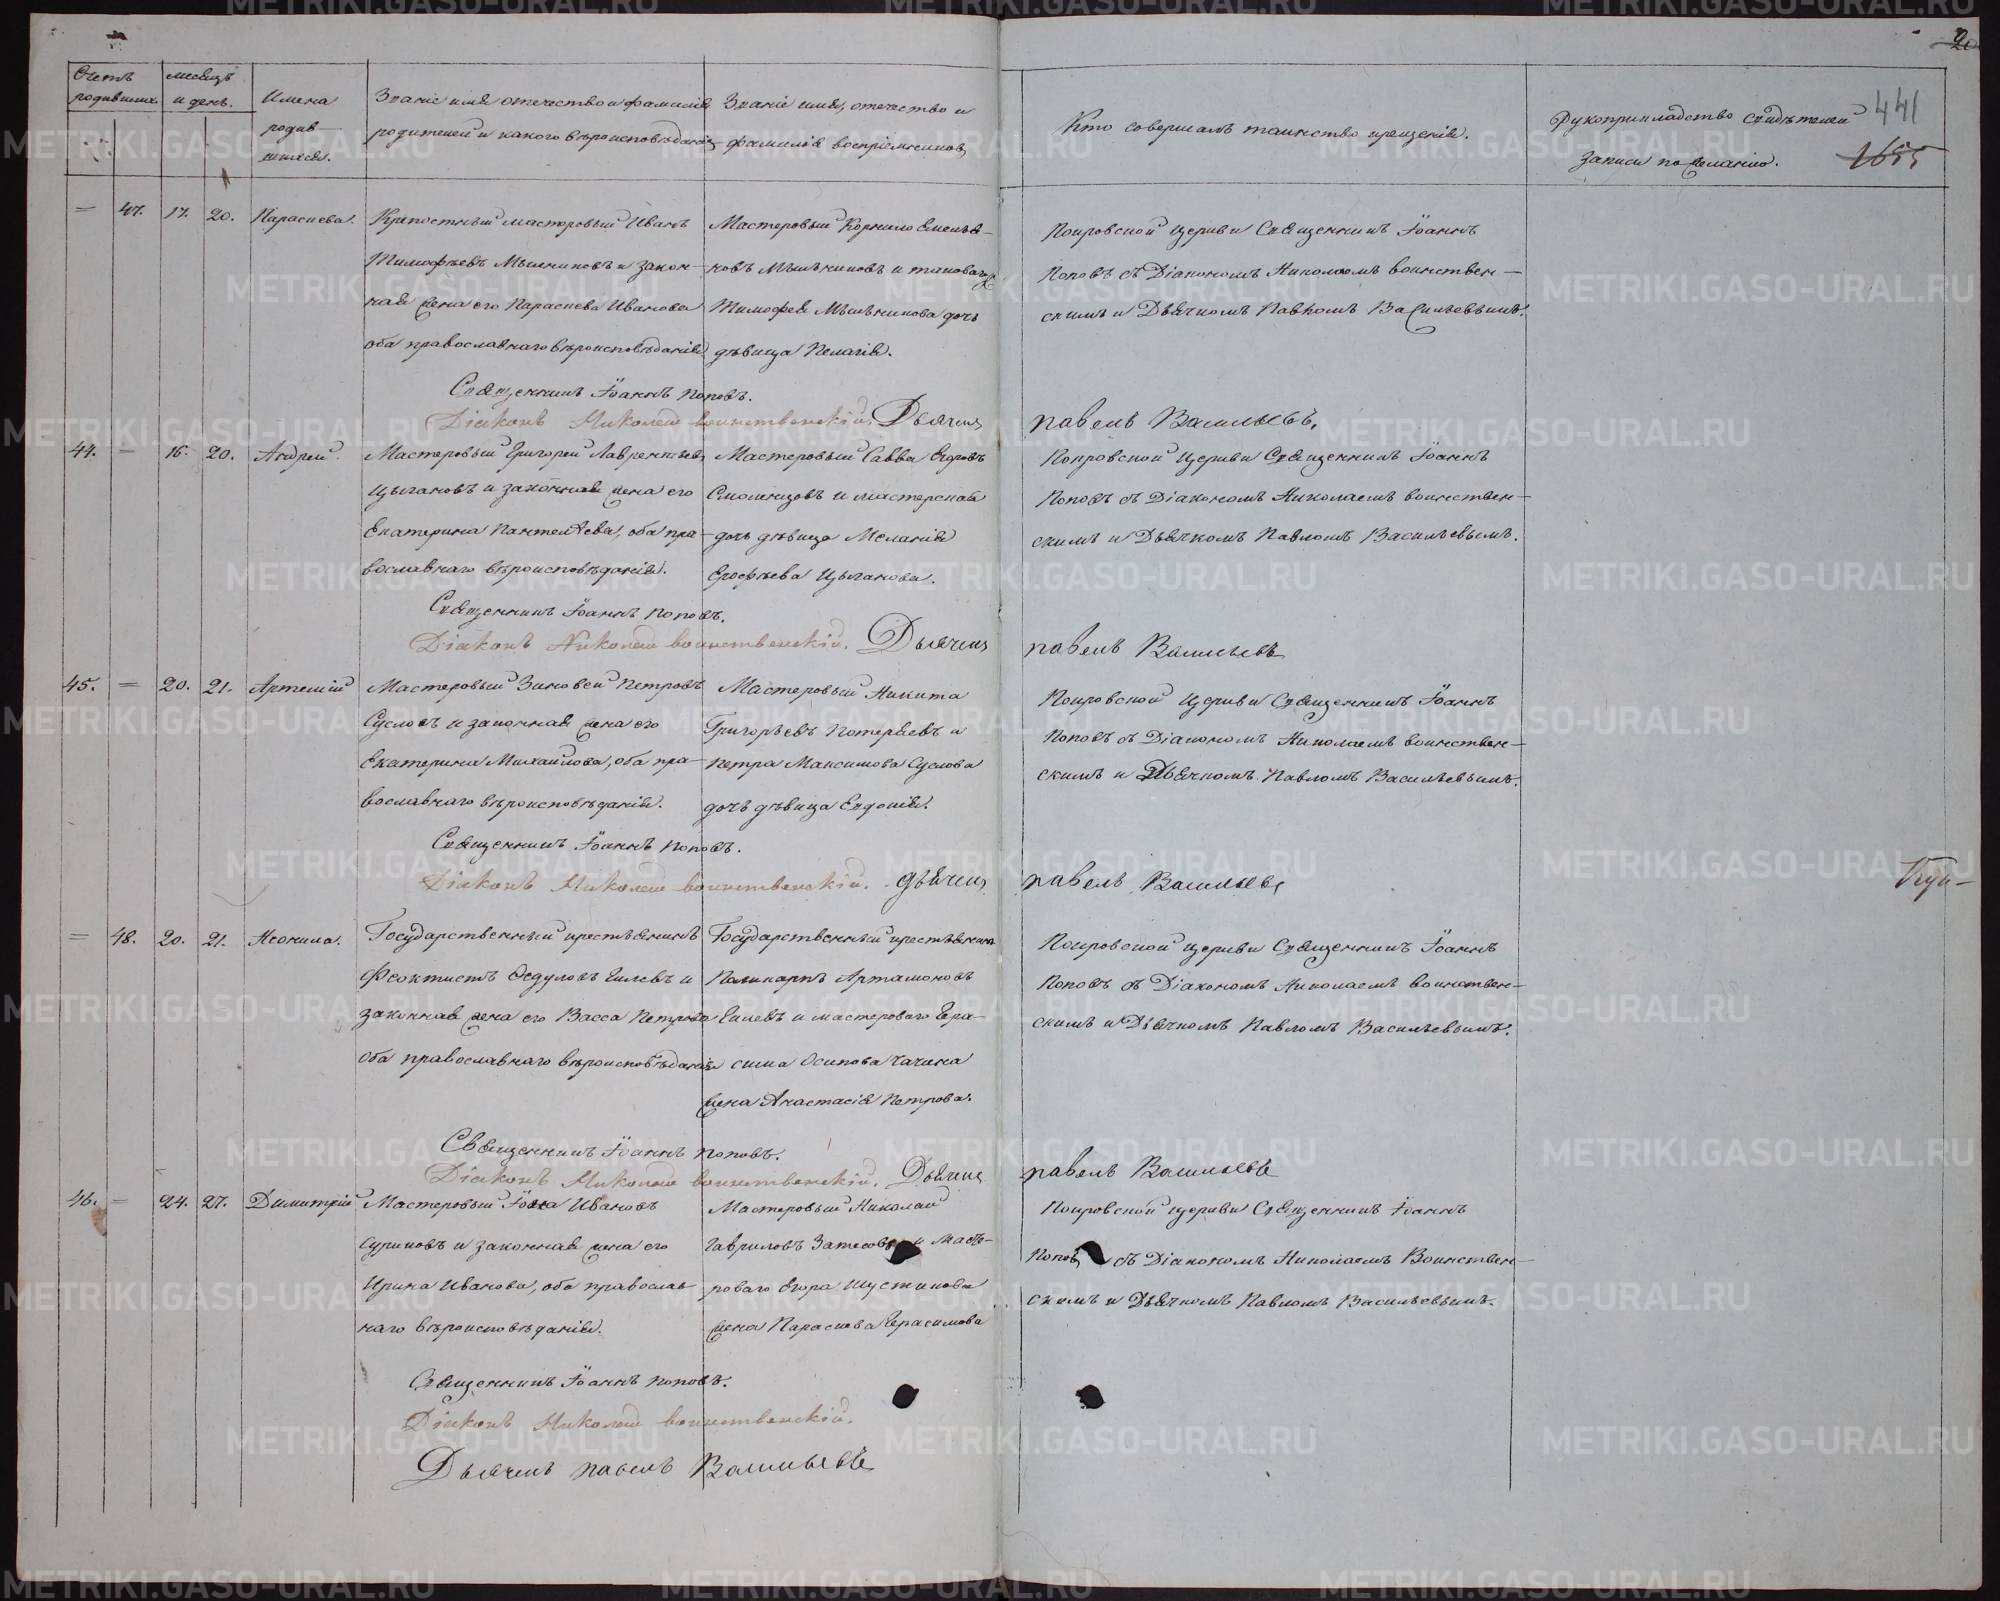 Счетъ родившихся.
месяцъ и день.
Имена родив-
шихся.
Званіе имя отечество и фамилія
родителей и какого вѣроисповѣданія
Званіе имя, отечество и
фамилія воспріемниковъ
Кто совершалъ таинство крещенія.
Рукоприкладство свидѣтелей
записи по желанію.
441
1655
— 47. 17. 20. Параскева.
Крѣпостный мастеровый Иванъ
Тимофѣевъ Мыльниковъ и закон-
ная жена его Параскева Иванова
оба православнаго вѣроисповѣданія
Мастеровый Корнило Емелья-
новъ Мыльниковъ и
Тимофея Мыльникова дочь
дѣвица Пелагія.
Покровской церкви Священникъ Іоаннъ
Поповъ съ Діакономъ Николаемъ воинствен-
скимъ и Дьячкомъ Павломъ Васильевымъ.
Священникъ Іоаннъ Поповъ.
Діаконъ Николай воинственскій. Дьячекъ павелъ Васильевъ.
44. — 16. 20. Андрей.
Мастеровый Григорей Лаврентьевъ
Цыгановъ и законная жена его
Екатерина Пантелѣева, оба пра-
вославнаго вѣроисповѣданія.
Мастеровый Савва Егоровъ
Смоленцовъ и мастерская
дочь дѣвица Меланія
Ерофѣева Цыганова.
Покровской Церкви Священникъ Іоаннъ
Поповъ съ Діакономъ Николаемъ воинствен-
скимъ и Дьячкомъ Павломъ Васильевымъ.
Священникъ Іоаннъ Поповъ.
Діаконъ Николай воинственскій. Дьячекъ павелъ Васильевъ
45. — 20. 21. Артемій
Мастеровый Зиновей Петровъ
Сусловъ и законная жена его
Екатерина Михайлова, оба пра-
вославнаго вѣроисповѣданія.
Мастеровый Никита
Григорьевъ Потеряевъ и
Петра Максимова Суслова
дочь дѣвица Евдокія.
Покровской Церкви Священникъ Іоаннъ
Поповъ съ Діакономъ Николаемъ воинствен-
скимъ и Дьячкомъ Павломъ Васильевымъ.
Священникъ Іоаннъ Поповъ.
Діаконъ Николай воинственскій. дьячекъ павелъ Васильевъ
— 48. 20. 21. Неонила.
Государственный крестьянинъ
Феоктистъ Ѳедуловъ Гилевъ и
законная жена его Васса Петрова
Оба православнаго вѣроисповѣданія
Государственный крестьянинъ
Поликарпъ Артамоновъ
Гилевъ и мастероваго Гера-
сима Осипова Чачина
жена Анастасія Петрова.
Покровской церкви Священникъ Іоаннъ
Поповъ съ Діакономъ Николаемъ воинствен-
скимъ и Дьячкомъ Павломъ Васильевымъ.
Священникъ Іоаннъ Поповъ.
Діаконъ Николай воинственскій. Дьячекъ павелъ Васильевъ
46. — 24. 27. Димитрій
Мастеровый Іона Ивановъ
Суриковъ и законная жена его
Ирина Иванова, оба православ-
наго вѣроисповѣданія.
Мастеровый Николай
Гавриловъ Затесовъ и Масте-
роваго Егора Шустикова
жена Параскева Герасимова
Покровской церкви Священникъ Іоаннъ
Поповъ съ Діакономъ Николаемъ Воинствен-
скимъ и Дьячкомъ Павломъ Васильевымъ.
Священникъ Іоаннъ Поповъ.
Діаконъ Николай воинственскій.
Дьячекъ павелъ Васильевъ
METRIKI.GASO-URAL.RU